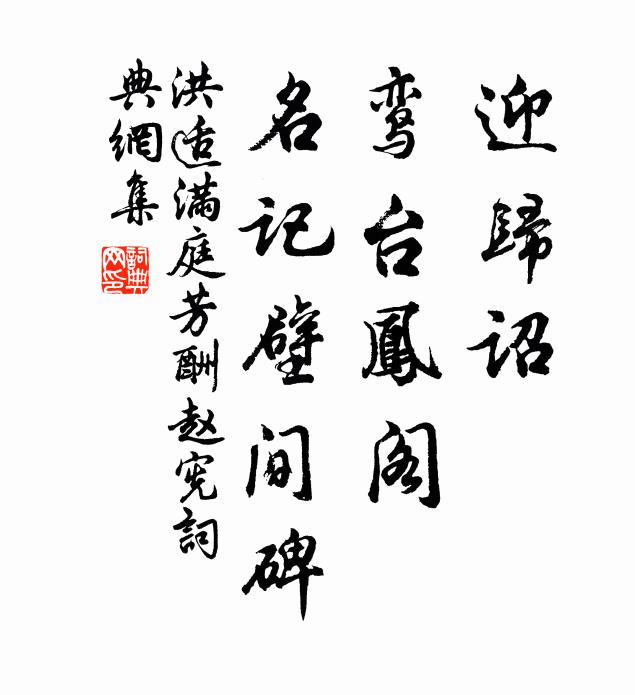 迎歸詔
鸾台鳳阁
名记壁间碑
洪适满庭芳酬赵宪詞
典網集
詞典网印